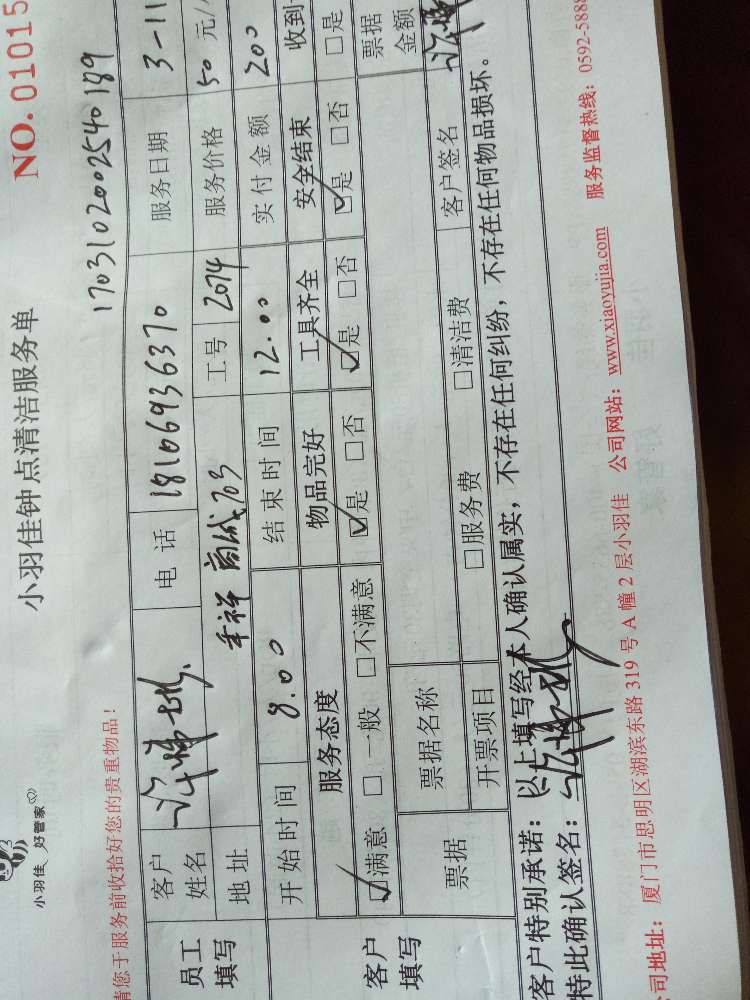 小羽佳 好管家
小羽佳钟点清洁服务单
NO.01015
1703102002540189
请您于服务前收拾好您的贵重物品!
员工填写 客户姓名 电话 18106936370 服务日期 3-11
地址 703 工号 2074 服务价格 50元/
开始时间 8.00 结束时间 12.00 实付金额 200
客户填写 服务态度 物品完好 工具齐全 安全结束 收到
☑满意 □一般 □不满意 ☑是 □否 ☑是 □否 ☑是 □否 □是
票据 票据名称 票据金额
开票项目 □服务费 □清洁费 客户签名
客户特别承诺:以上填写经本人确认属实,不存在任何纠纷,不存在任何物品损坏。
特此确认签名:
公司地址:厦门市思明区湖滨东路319号A幢2层小羽佳 公司网站:www.xiaoyujia.com 服务监督热线:0592-5888